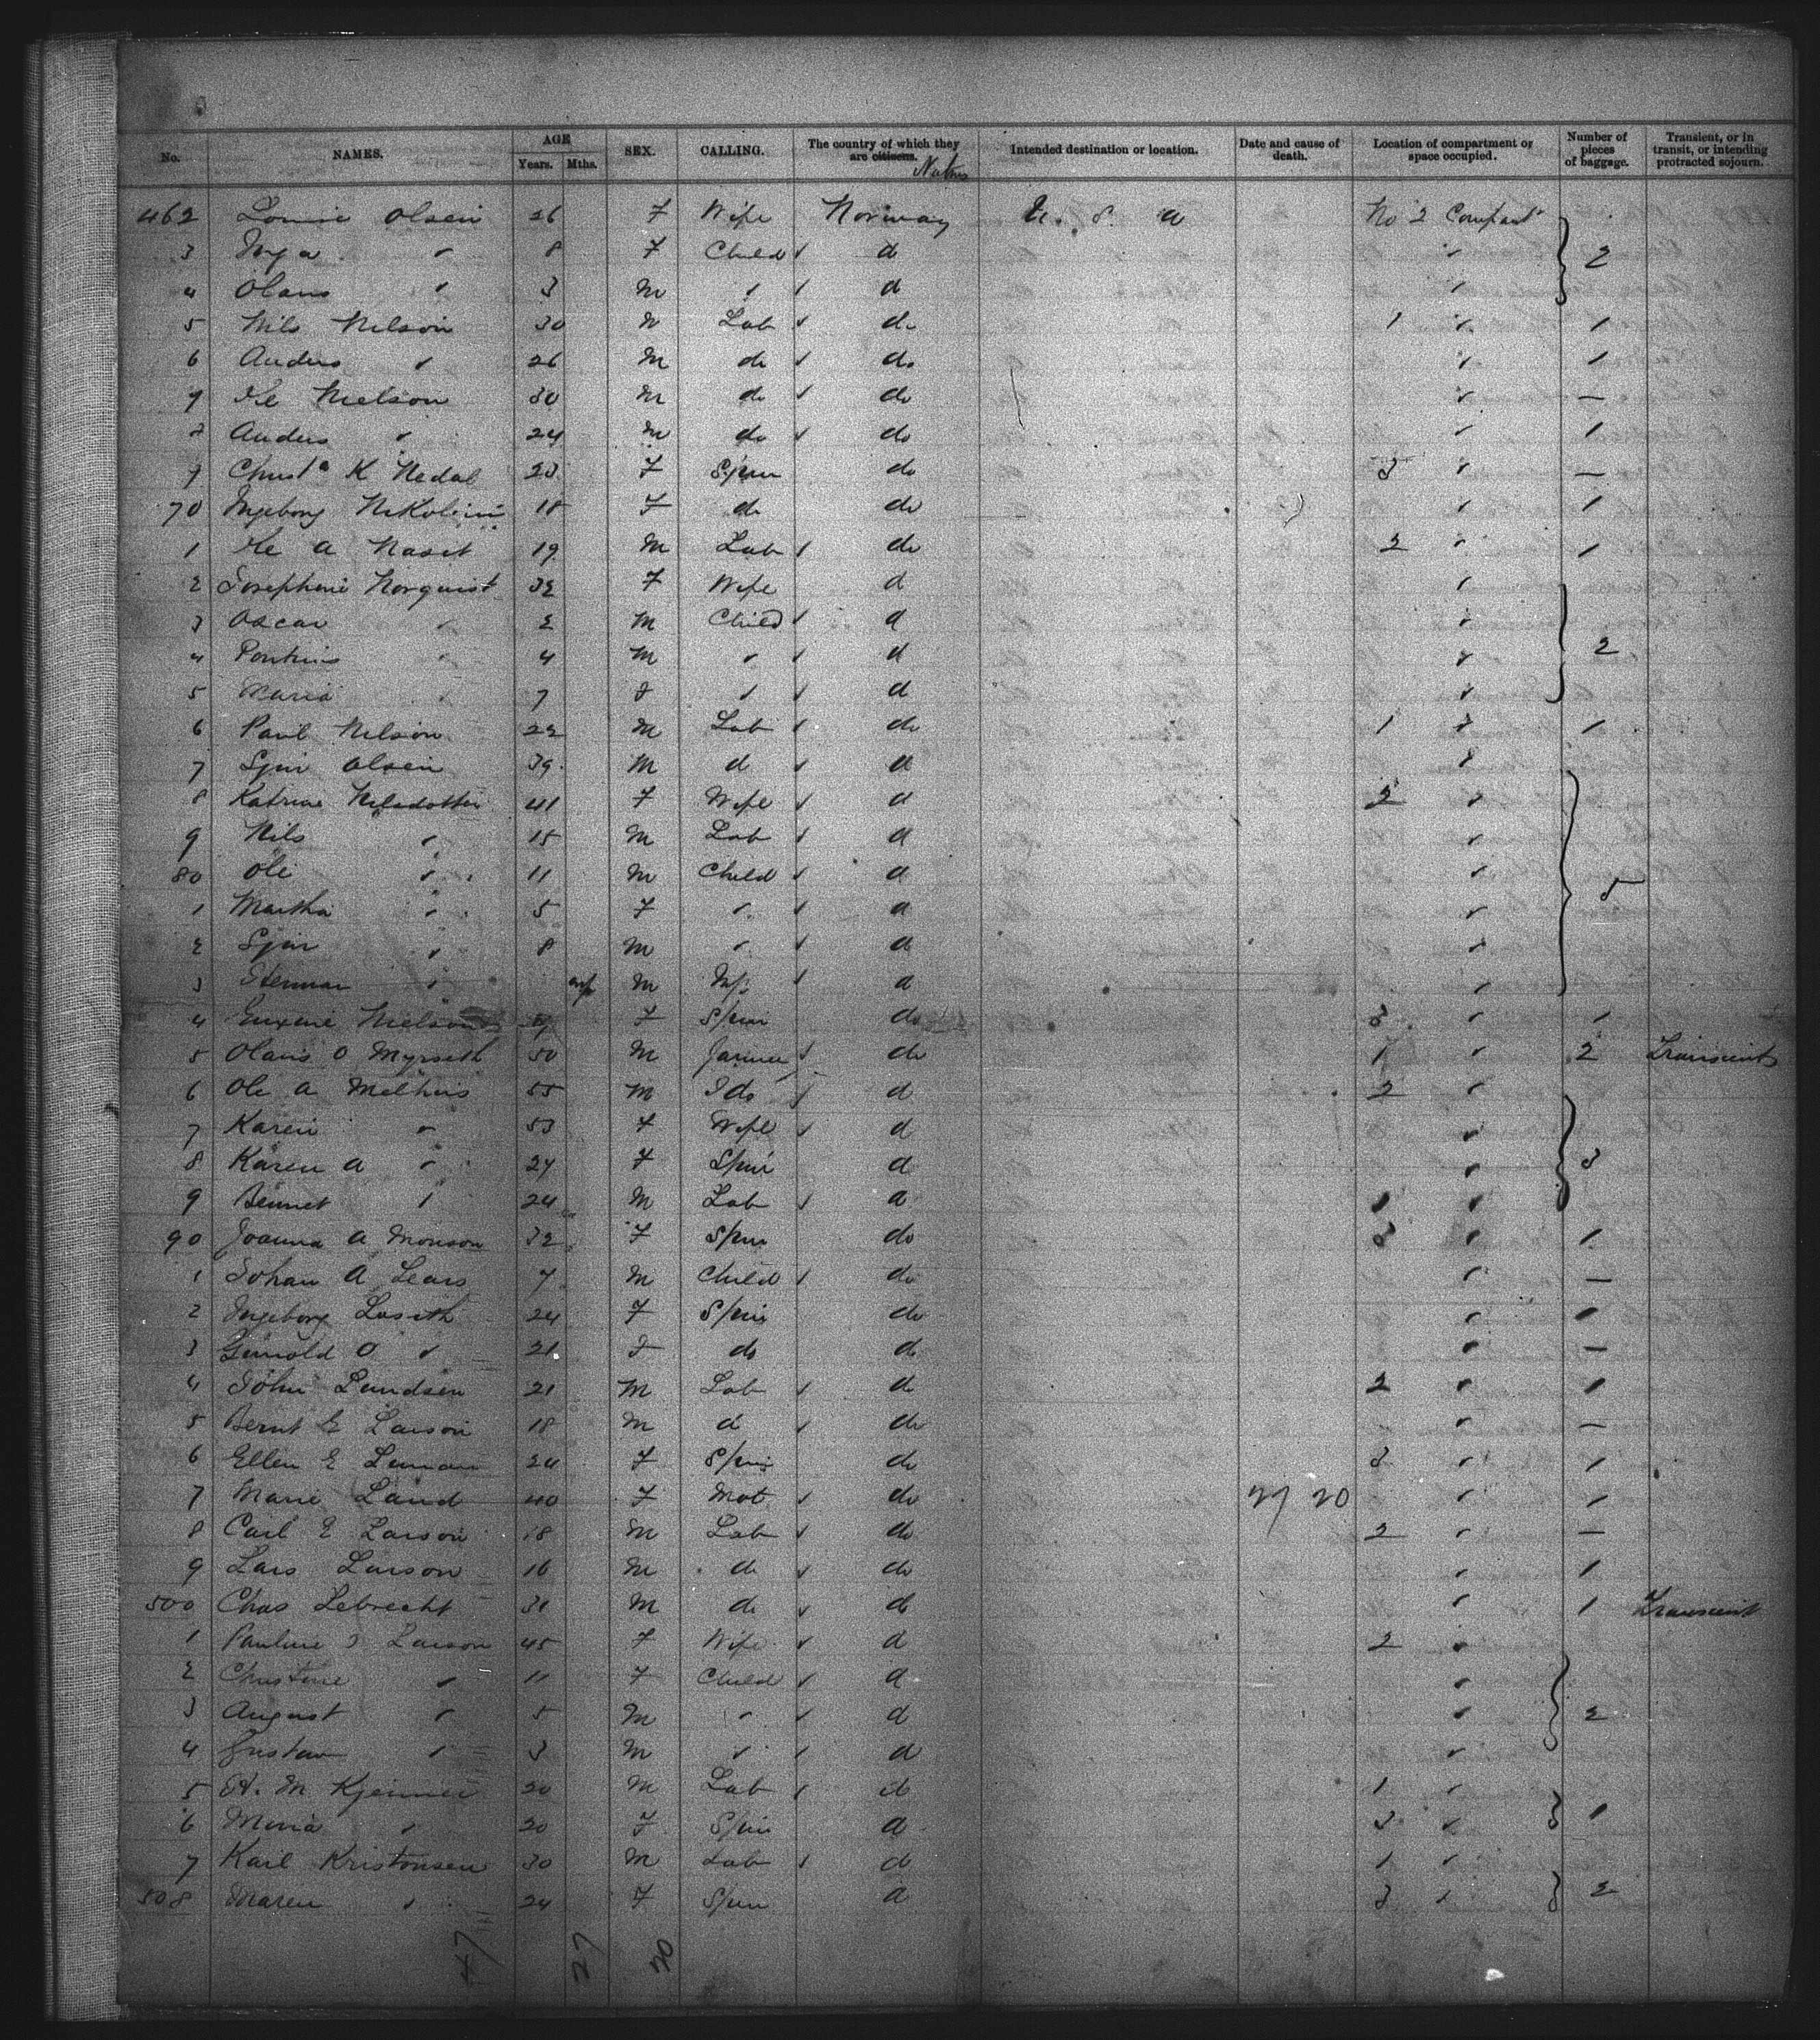 No. NAMES. AGE Years. Mths. SEX. CALLING. The country of which they are citizens. Natns Intended destination or location. Date and cause of death. Location of compartment or space occupied. Number of pieces of baggage. Transient, or in transit, or intending protracted sojourn.
462 Olsen 26 F Wife Norway U. S. a No 2 Compart
3 Inga " 8 F Child d " 2
4 Olaus " 3 M " d "
5 Nils Nelson 30 M Lab do 1 " 1
6 Anders " 26 M do do " 1
7 Nielson 30 M do do " —
8 Anders " 24 M do do " 1
9 K Nedal 23 F Spin do 3 " —
70 Ingeborg 18 F do do " 1
1 a 19 M Lab do 2 " 1
2 Josephine Norquist 32 F Wife d "
3 Oscar " 2 M Child d " 2
4 Pontus " 4 M " d "
5 Maria " 7 F " d "
6 Paul Nelson 22 M Lab do 1 " 1
7 Olsen 39 M d d "
8 Katrine Nilsdotter 41 F Wife d 2 "
9 Nils " 15 M Lab d "
80 Ole " 11 M Child d " 5
1 Martha " 5 F " d "
2 " 8 M " d "
3 Herman " inf M Inf d "
4 Nielson F Spin do 3 " 1
5 Olaus O Myrseth 50 M Farmer do 1 " 2 Transcient
6 Ole a Melhus 55 M do d 2 "
7 Karen " 53 F Wife d "
8 Karen a " 27 F Spin d " 3
9 Bennet " 24 M Lab d 1 "
90 Joanna a Monson 32 F Spin do 3 " 1
1 Johan A 7 M Child do " —
2 Ingeborg Loseth 24 F Spin do " 1
3 O " 21 F do do " —
4 John Lundsen 21 M Lab do 2 " 1
5 Bernt E Larson 18 M d do " —
6 Ellen E 24 F Spin do 3 " 1
7 Marie Land 40 F Mot do 27 20 " 1
8 Carl E Larson 18 M Lab do 2 " —
9 Lars Larson 16 M do do " 1
500 Chas Lebrecht 31 M do do " 1 Transcient
1 Pauline Larson 45 F Wife d 2 "
2 Christine " 11 F Child d "
3 August " 5 M " d " 2
4 Gustav " 3 M " d "
5 M 20 M Lab do 1 "
6 " 20 F Spin d 3 " 1
7 Karl Kristonsen 30 M Lab do 1 "
508 Maren " 24 F Spin d 3 " 2
47 27 20